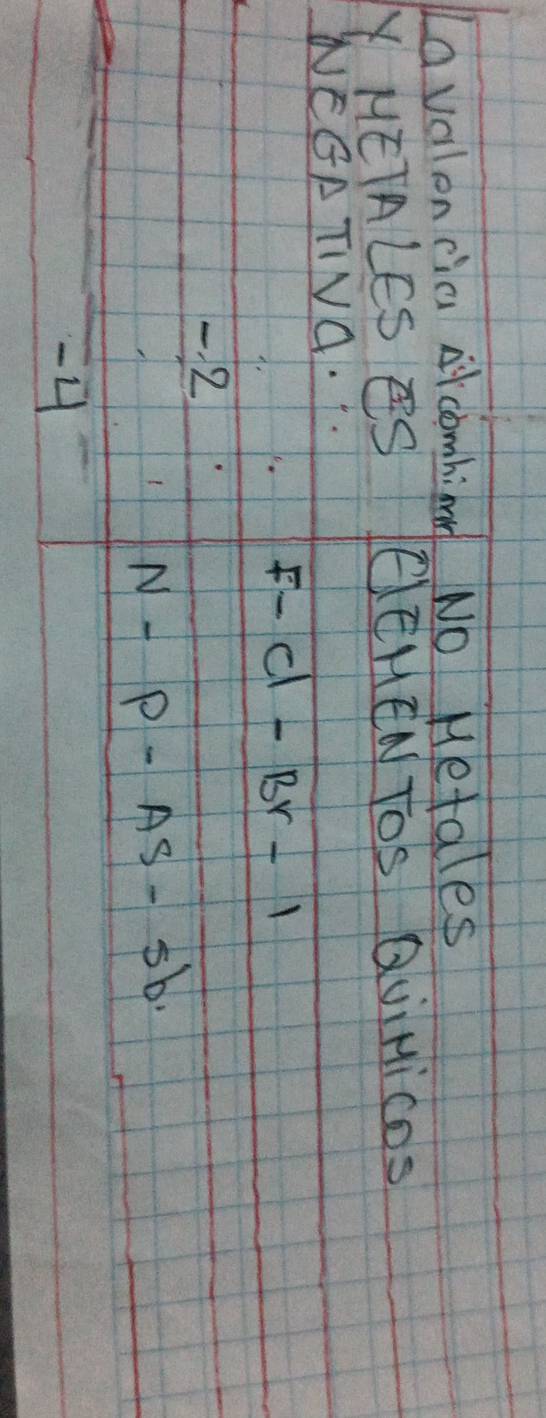 La valencia al combinar
Y METALES ES
NEGATIVA.
-2
-4
NO Metales
ElEMENTOS QUIMICOS
F - Cl - Br - I
N - P - AS - Sb.